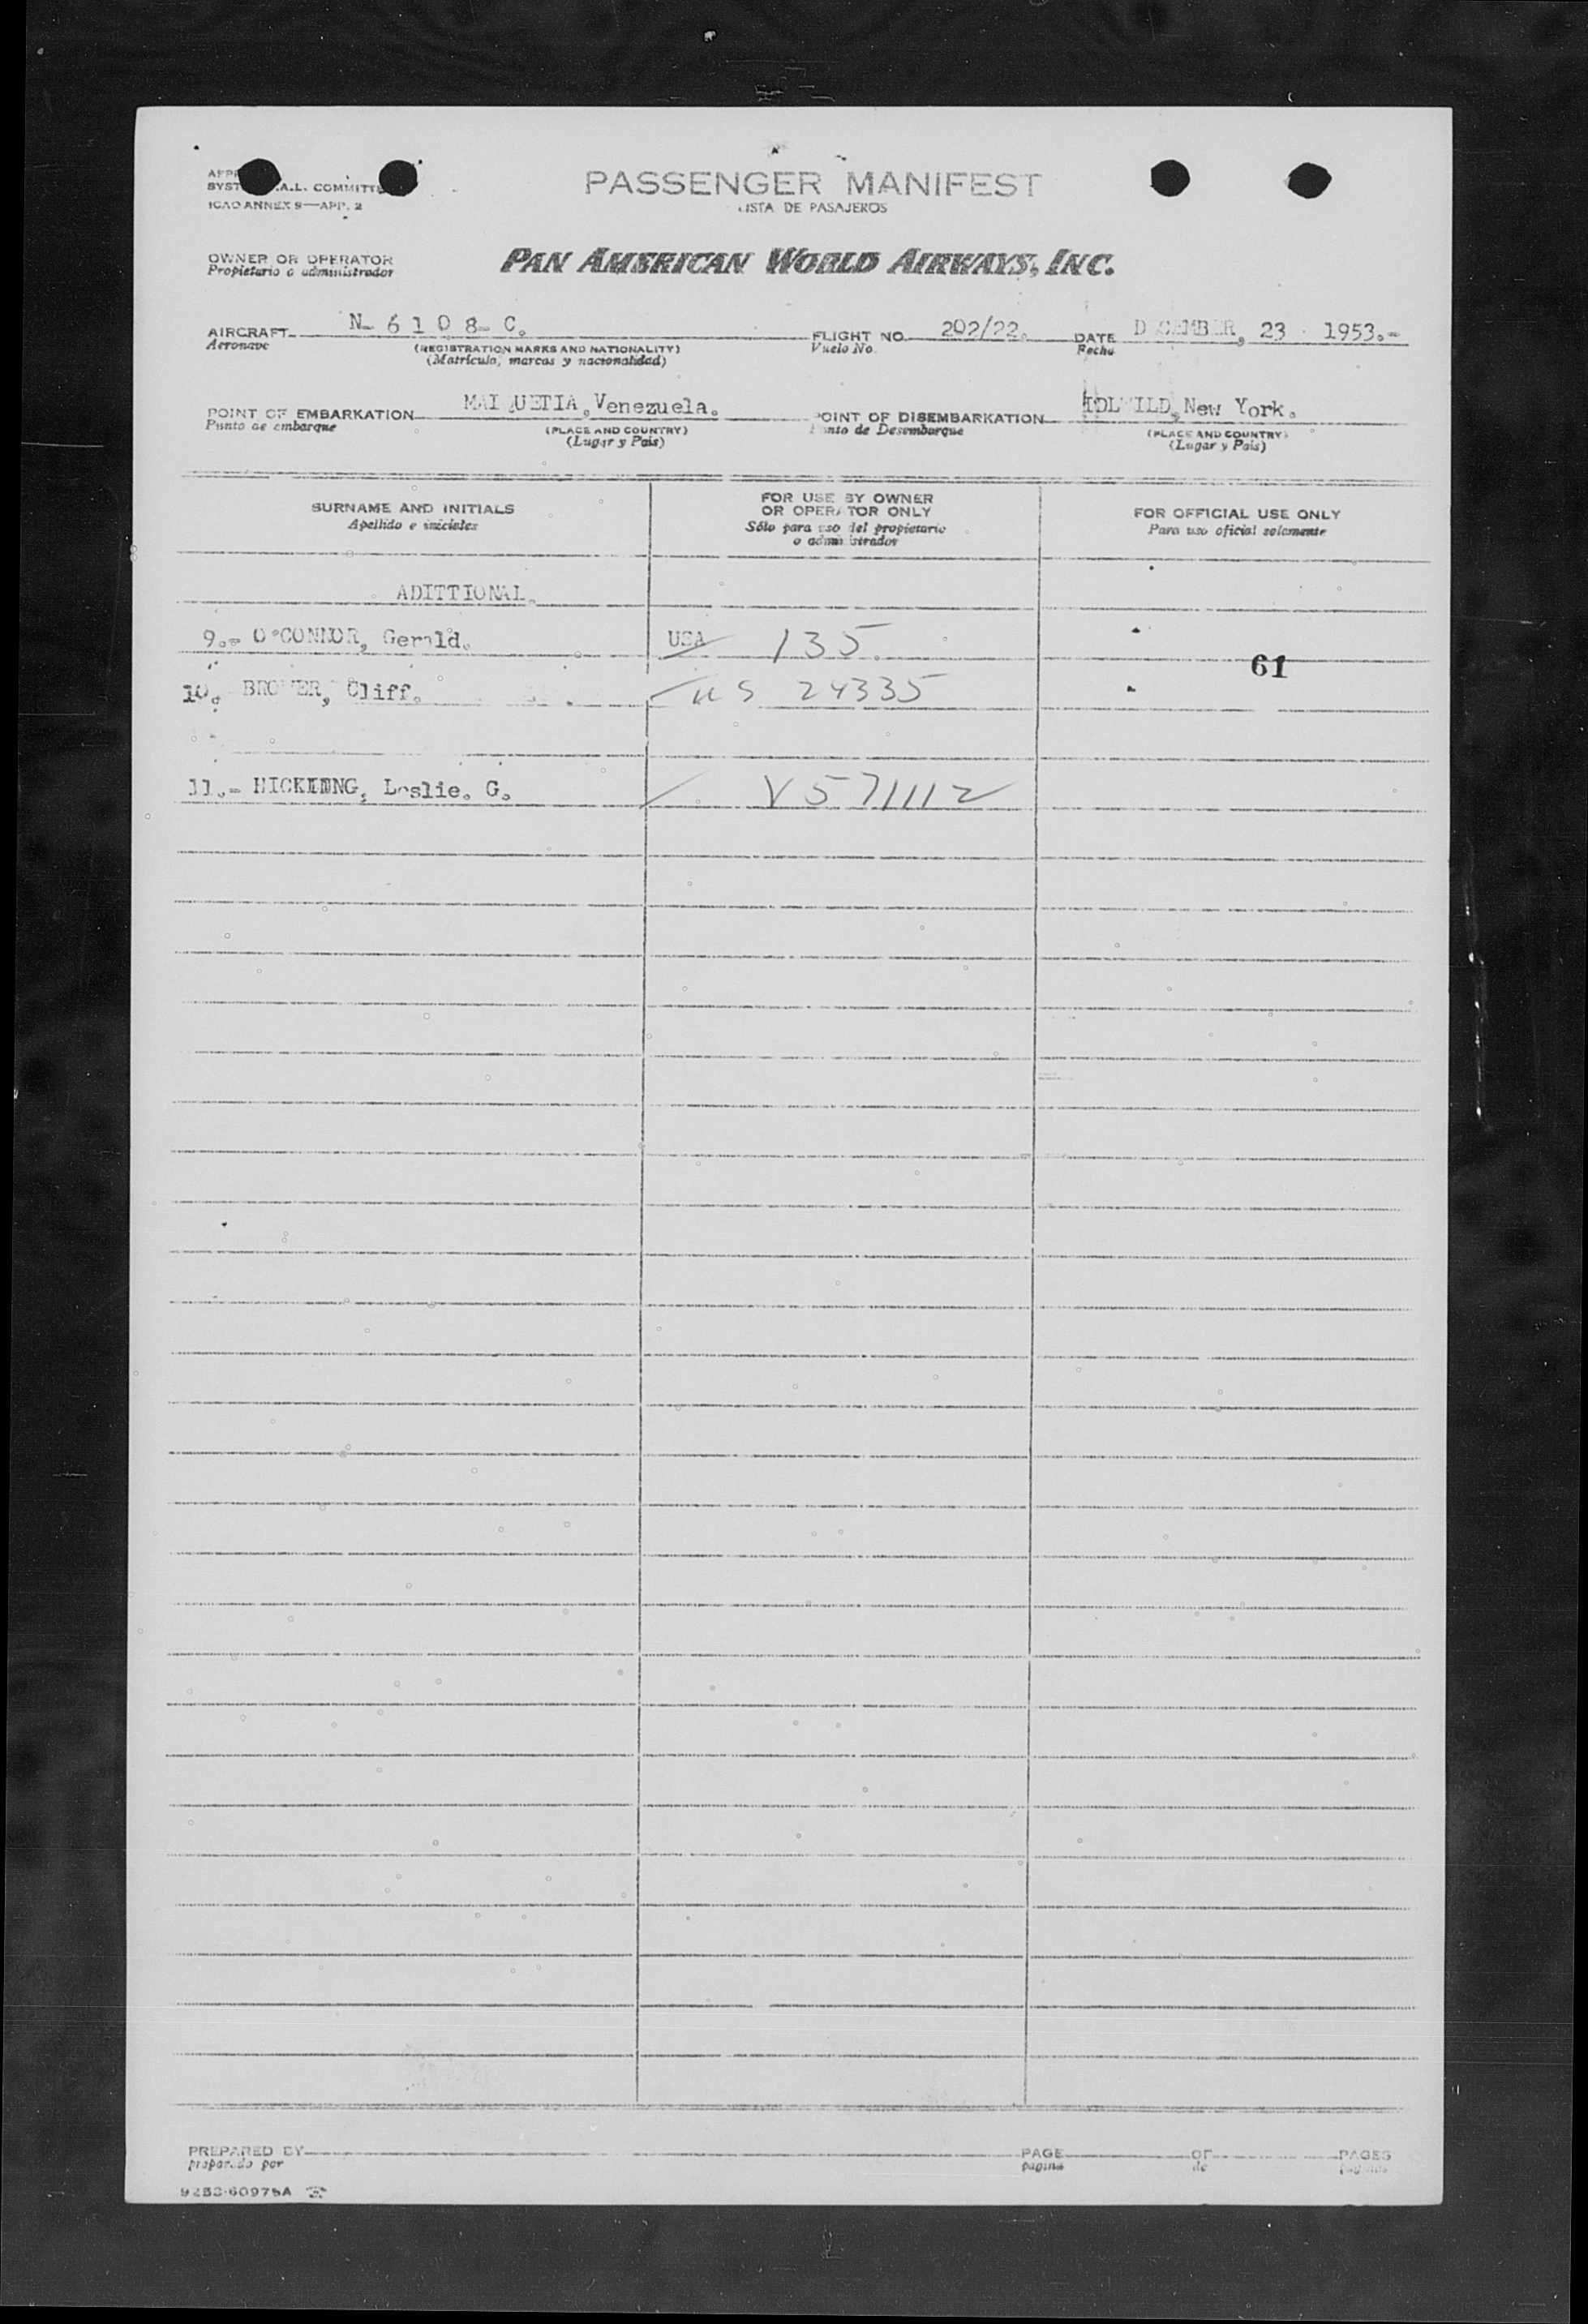 PASSENGER MANIFEST
LISTA DE PASAJEROS
A.L. COMMITTE
ICAO ANNEX 9—APP. 2
OWNER OR OPERATOR
Propietario o administrador
PAN AMERICAN WORLD AIRWAYS, INC.
AIRCRAFT N- 6 1 0 8- C. FLIGHT NO. 202/22. DATE DECEMBER, 23 1953.-
Aeronave (REGISTRATION MARKS AND NATIONALITY) Vuelo No. Fecha
(Matrícula, marcas y nacionalidad)
POINT OF EMBARKATION MAIQUETIA, Venezuela. POINT OF DISEMBARKATION IDLEWILD, New York.
Punto de embarque (PLACE AND COUNTRY) Punto de Desembarque (PLACE AND COUNTRY)
(Lugar y País) (Lugar y País)
SURNAME AND INITIALS
Apellido e iniciales
FOR USE BY OWNER
OR OPERATOR ONLY
Sólo para uso del propietario
o administrador
FOR OFFICIAL USE ONLY
Para uso oficial solamente
ADITTIONAL.
9.- O'CONNOR, Gerald. USA 135.
61
10. BROWER, Cliff. US 24335
11.- HICKLING, Leslie. G. V571112
PREPARED BY PAGE OF PAGES
preparado por página de páginas
9253-60975A